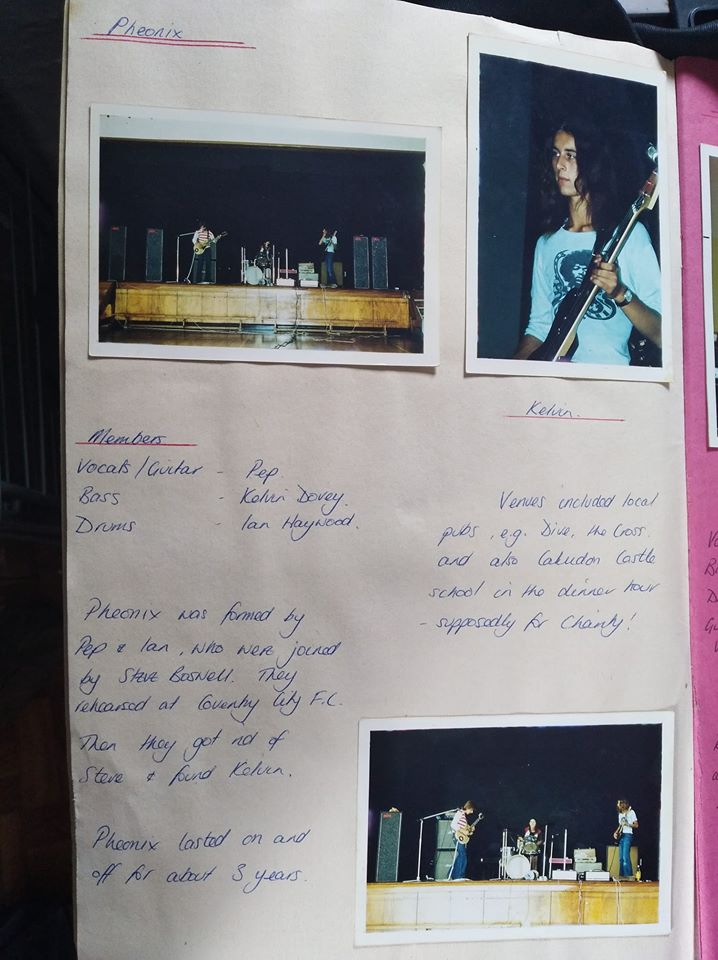 Pheonix
Kelvin.
Members
Vocals/Guitar - Pep.
Bass - Kelvin Dovey.
Drums - Ian Haywood.
Venues included local
pubs, e.g. Dive, the Cross.
and also Caludon Castle
school in the dinner hour
- supposedly for Charity!
Pheonix was formed by
Pep & Ian, who were joined
by Steve Boswell. They
rehearsed at Coventry City F.C.
Then they got rid of
Steve & found Kelvin.
Pheonix lasted on and
off for about 3 years.